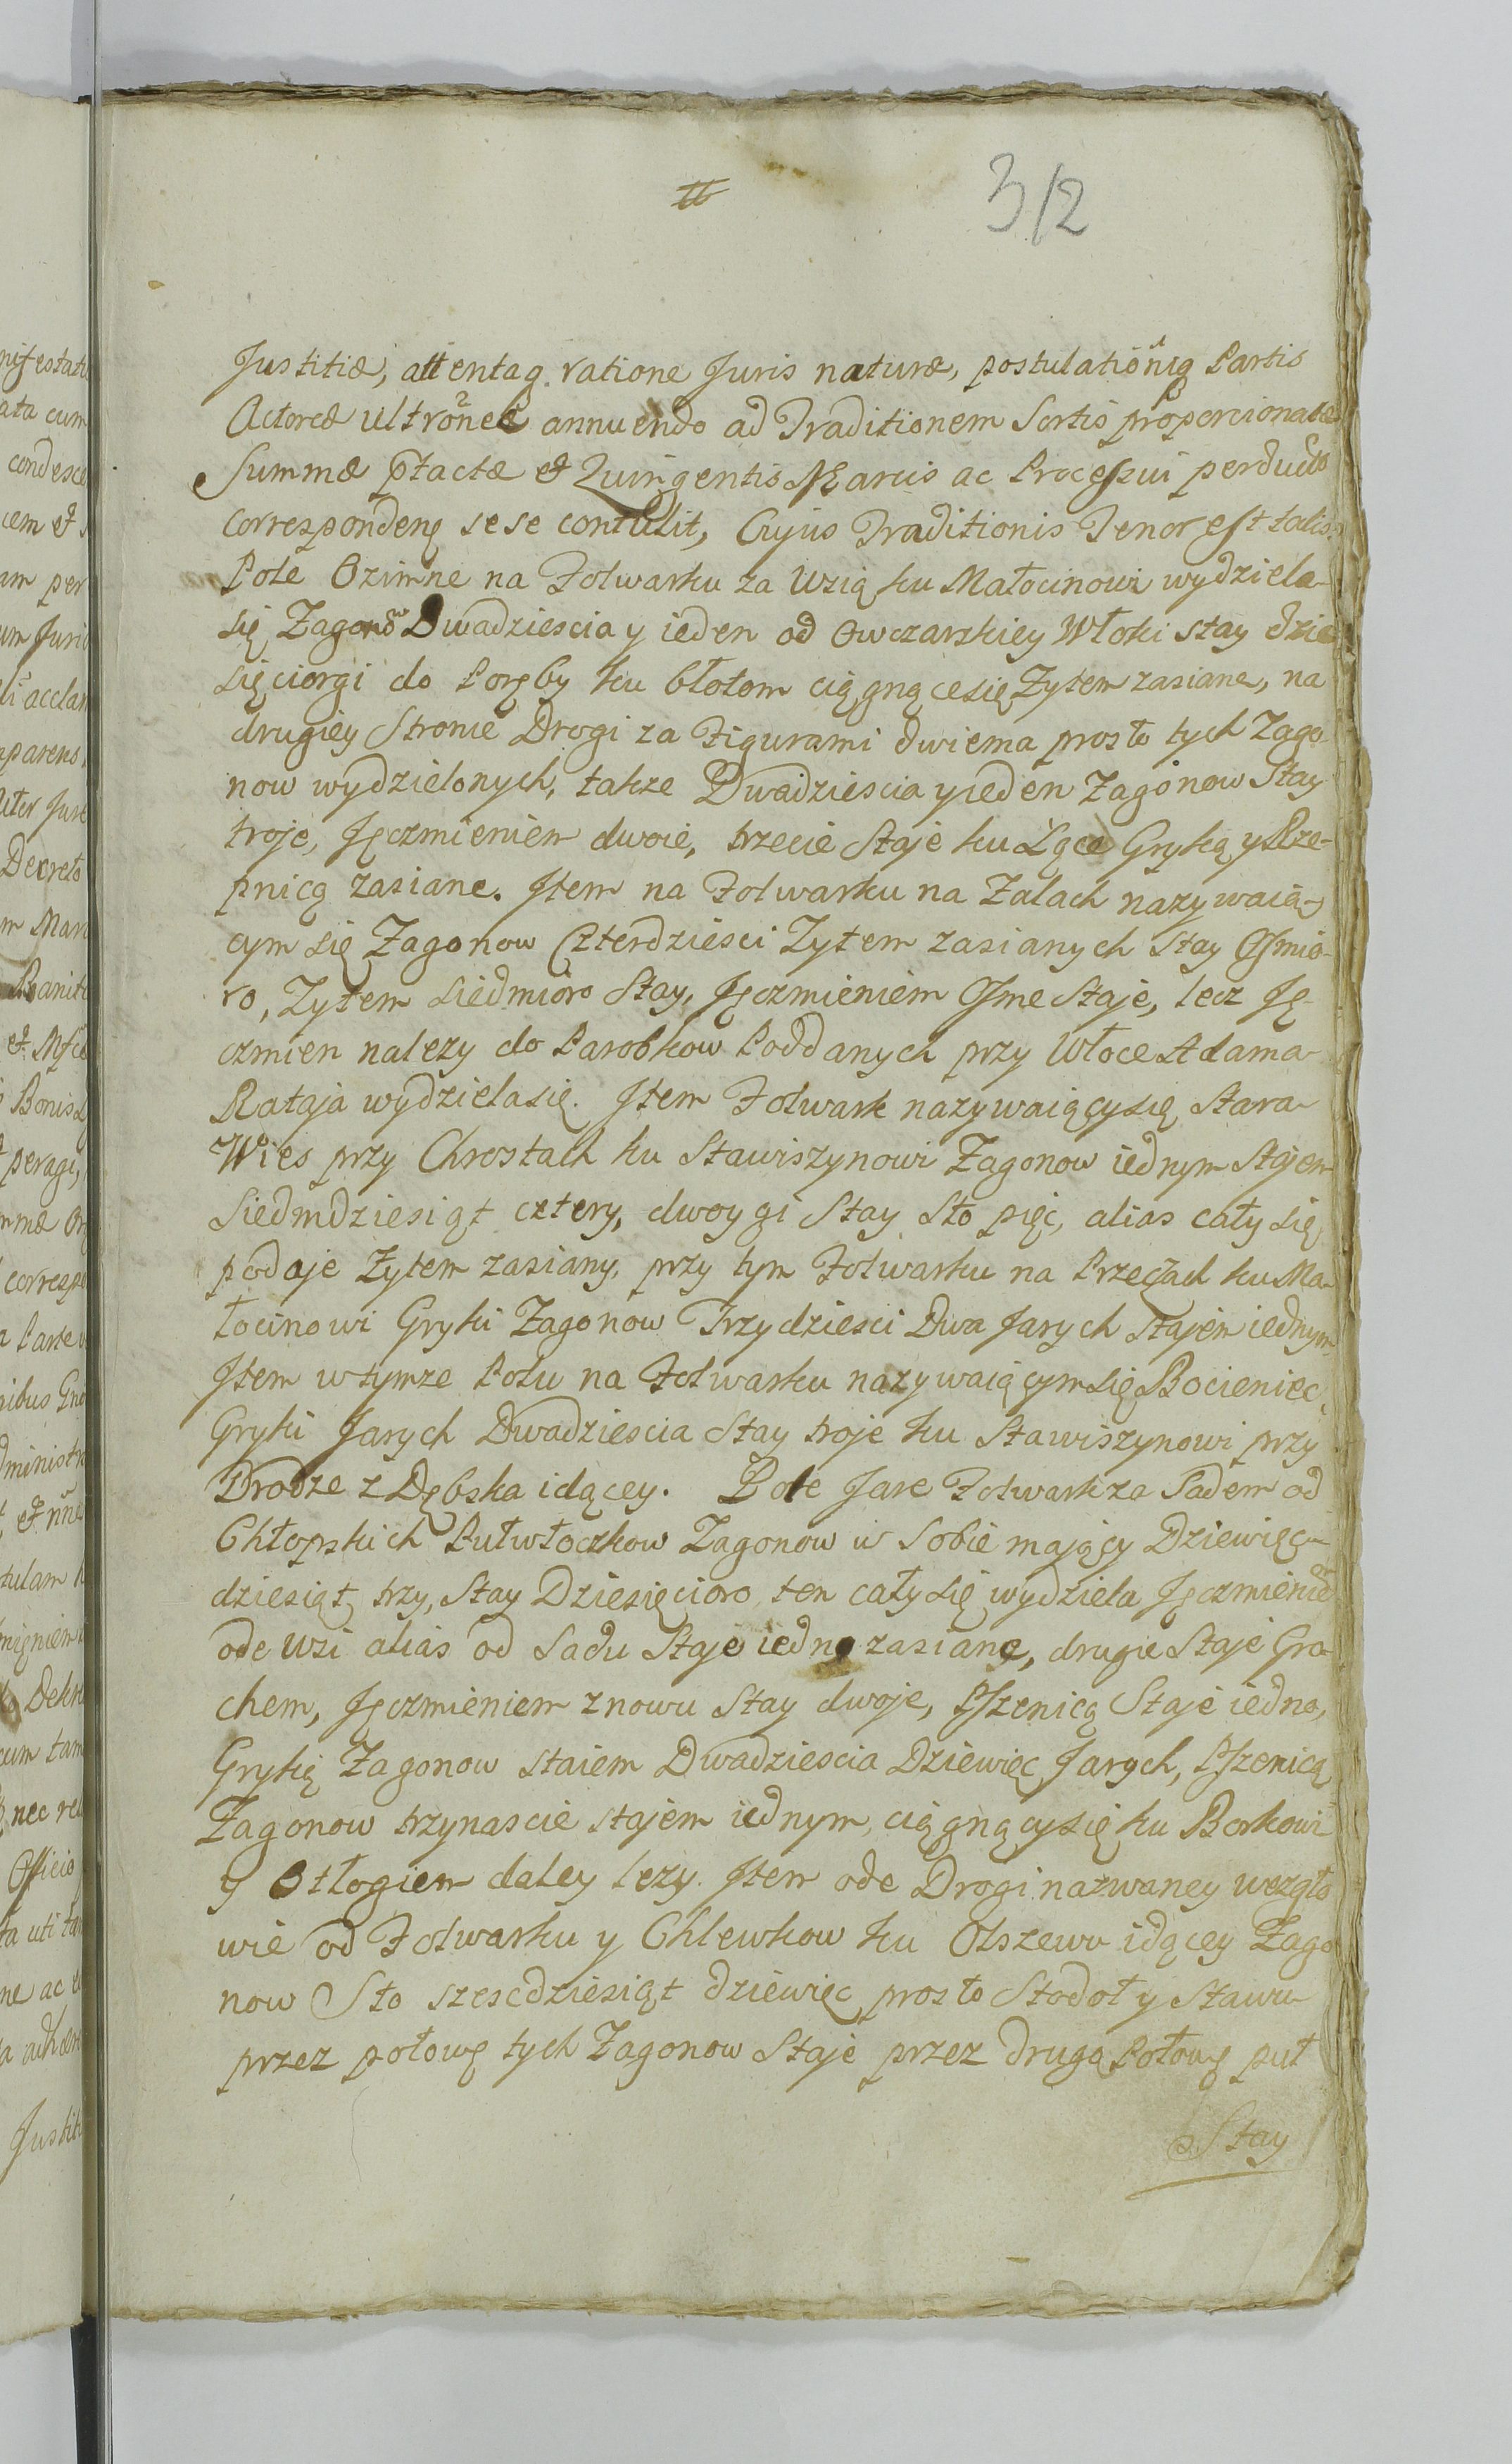 tt
3/2
Justitiæ, attentaq. ratione Juris naturæ, postulationiq Partis
Actoreæ ultronee annuendo ad Traditionem Sortis proporcionatæ
Summæ ptactæ et Quingentis Marcis ac Processui perducto
correspondenę sese contulit, Cujus Traditionis Tenor est talis.
Pole Ozimne na Folwarku za Wsią ku Małocinowi wydziela
się Zagonow Dwadziescia y ieden od Owczarskiey Włoki stay dzie
sięciorgi do Poręby ku błotom ciągnącesię Zytem zasiane, na
drugiey Stronie Drogi za Figurami dwiema prosto tych Zago
now wydzielonych, takze Dwadziescia y ieden Zagonow Stay
troje, Jęczmieniem dwoie, trzecie Staje ku Łące Gryką y Rze-
pnicą zasiane. Item na Folwarku na Zalach nazywaią-
cym się Zagonow Czterdziesci Zytem zasianych Stay Osmio-
ro, Zytem siedmioro Stay, Jęczmieniem Osme Staje, lecz Ję-
czmien nalezy do Parobkow Poddanych przy Włoce Adama
Rataja wydzielasię. Item Folwark nazywaiącysię Stara
Wies przy Chrostach ku Stawiszynowi Zagonow iednym Stajem
Siedmdziesiąt cztery, dwoygi Stay Sto pięc, alias cały się
podaje Zytem zasiany, przy tym Folwarku na Przeczach ku Ma-
łocinowi Gryki Zagonow Trzydziesci Dwa Jarych Stajem iednym
Item wtymze Polu na Folwarku nazywaiącymsię Bocieniec,
Gryki Jarych Dwadziescia Stay troje ku Stawiszynowi przy
Drodze z Dębska idącey. Pole Jare Folwark za Sadem od
Chłopskich Pułwłoczkow Zagonow w Sobie mający Dziewięc-
dziesiąt trzy, Stay Dziesięcioro, ten cały się wydziela Jęczmienie
ode Wsi alias od Sadu Staje iedno zasiane, drugie Staje Gro
chem, Jęczmieniem znowu Stay dwoje, Pszenicą Staje iedno,
Gryką Zagonow staiem Dwadziescia Dziewięc Jarych, Pszenicą
Zagonow trzynascie stajem iednym, ciągnącysię ku Borkowi
y Otłogiem daley lezy. Item ode Drogi nazwaney wezgło
wie od Folwarku y Chlewkow ku Olszewu idącey Zago
now Sto szescdziesiąt dziewięc prosto Stodoł y Stawu
przez połowę tych Zagonow Staje przez drugą Połowę puł
Stay